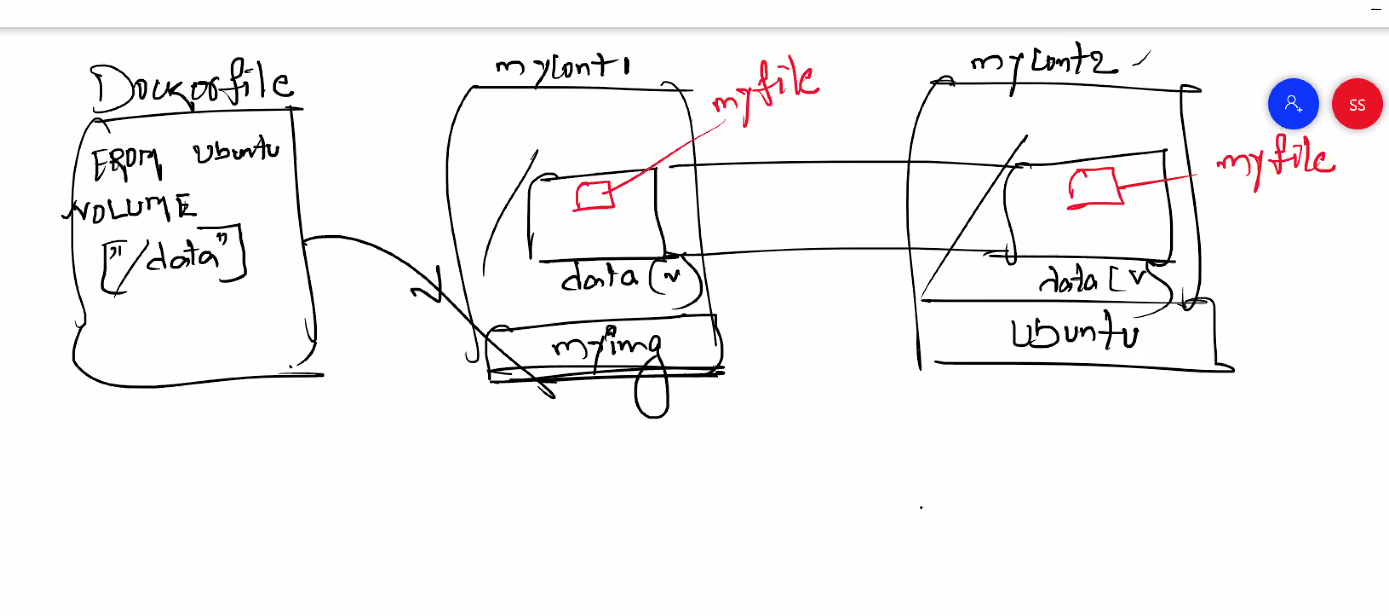 Dockerfile
FROM Ubuntu
VOLUME
["/data"]
mycont1
myfile
data (v)
myimg
mycont2
SS
myfile
data (v)
Ubuntu